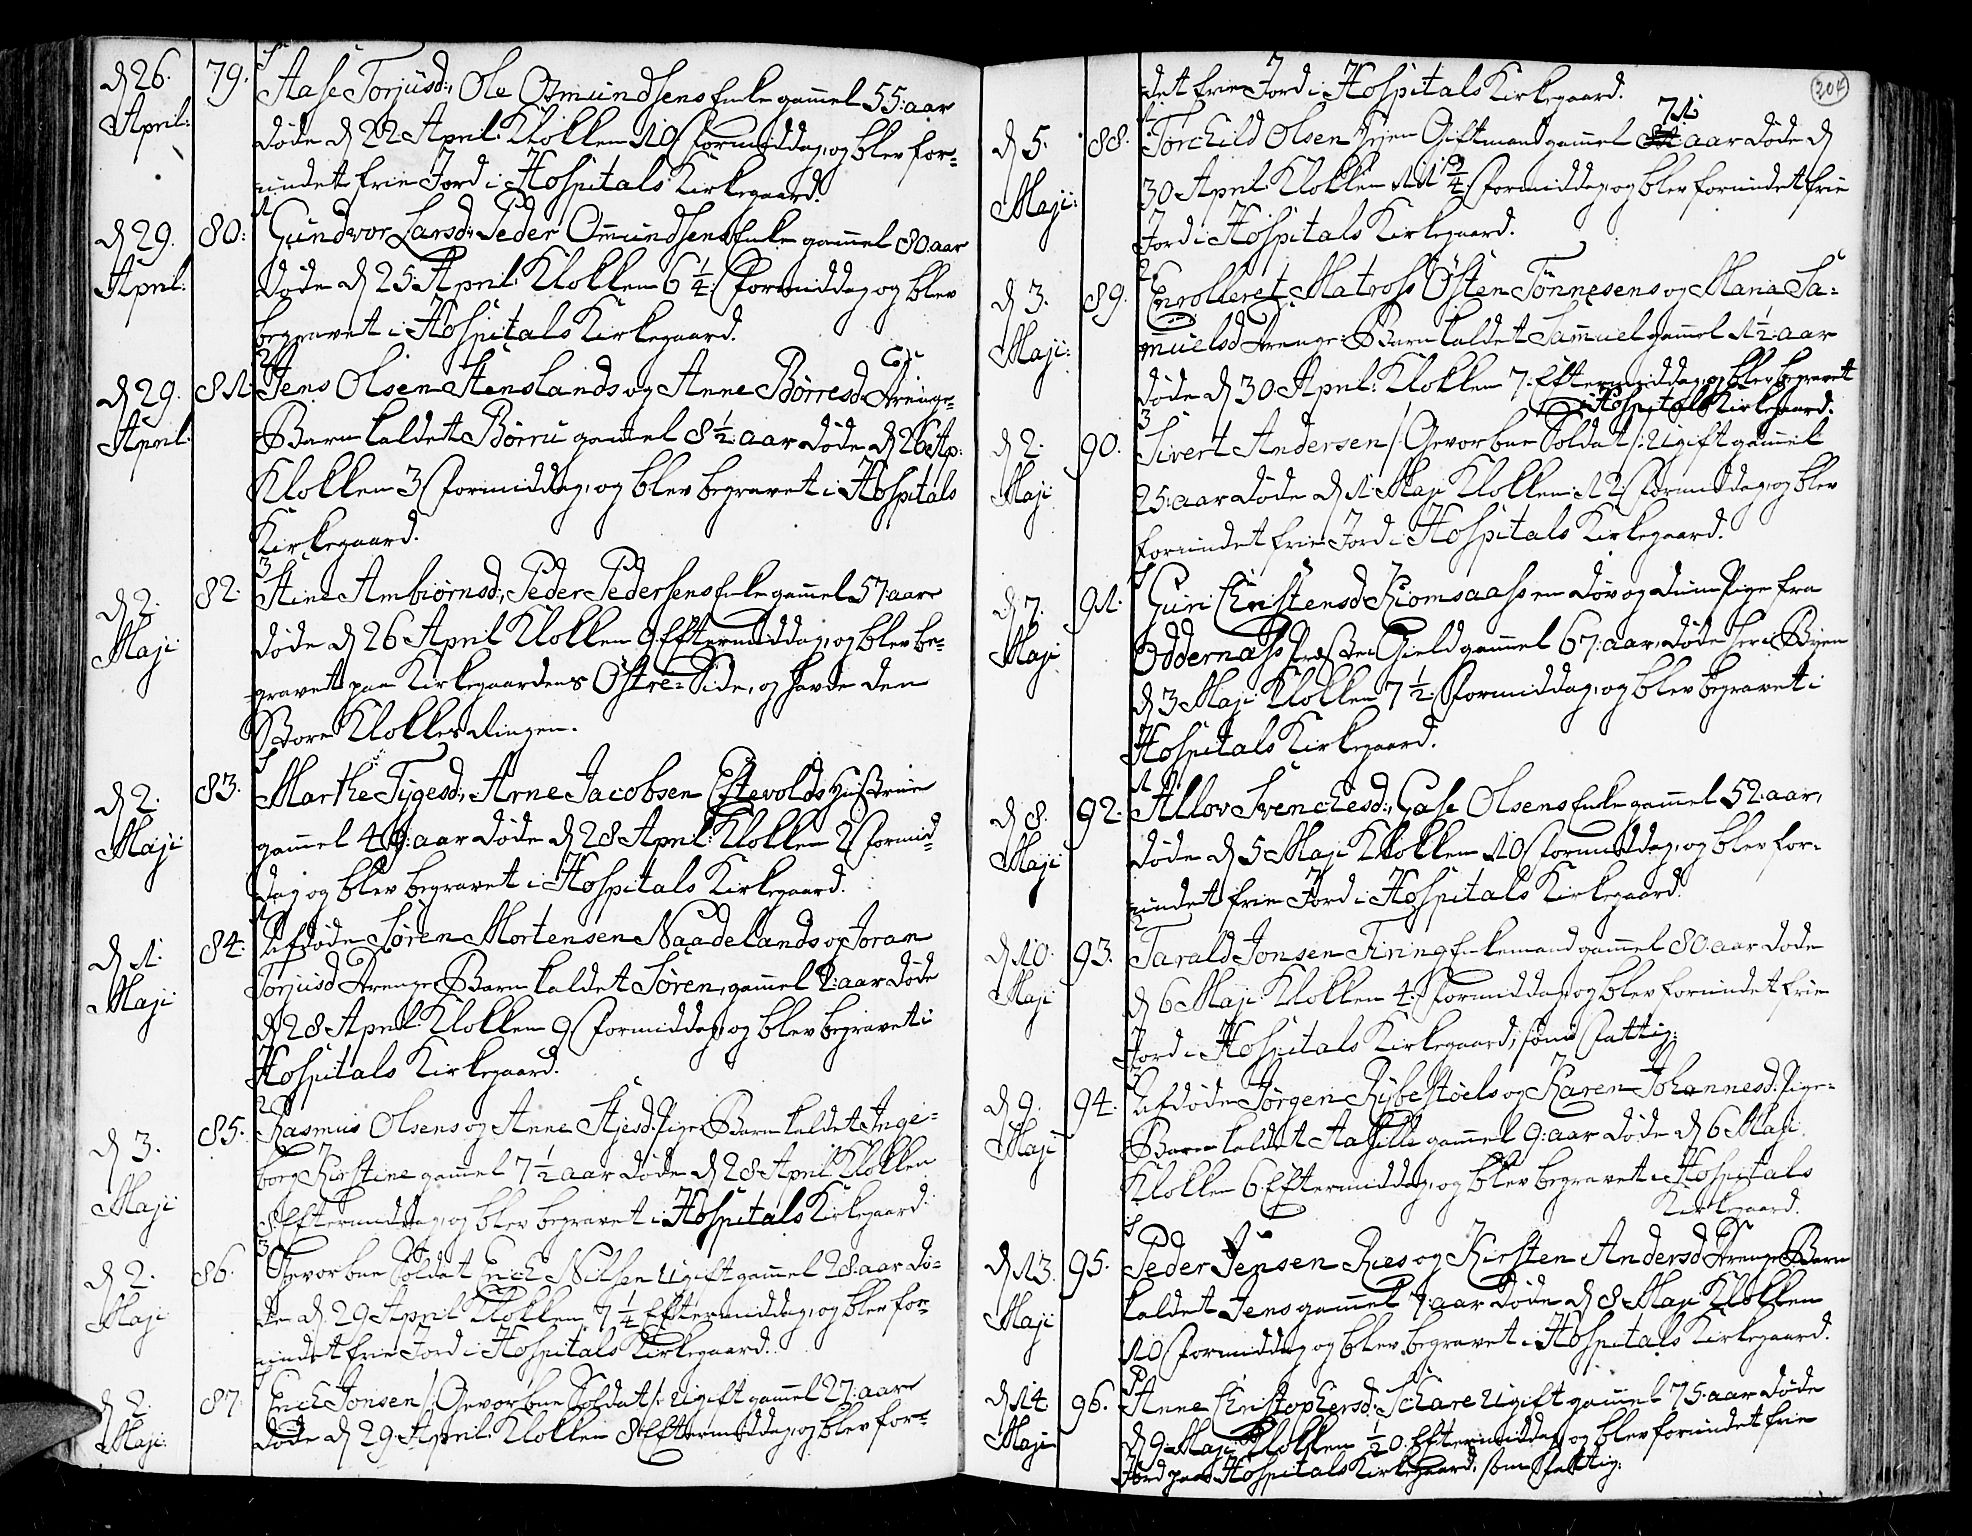 d 26. April: 79. Aase Torjusd:, Ole Omundsens Enke gammel 55: aar
døde d 22 April: Klokken 10 Formiddag, og blev for-
undet frie Jord i Hospitals Kirkegaard.
d 29. April: 80: Gundvor Larsd: Peder Omundsens Enke gammel 80. aar
døde d 25 April: Klokken 6 1/4: Formiddag og blev
begravet i Hospitals Kirkegaard.
d 29. April: 81: Jens Olsen Stenslands og Anne Børresd: Drenge-
Barn kaldet Børru gammel 8 1/2: aar døde d 26 Ap:
Klokken 3 Formiddag, og blev begravet i Hospitals
Kirkegaard.
d 2. Maji 82. Stine Ambiørnsd:, Peder Pedersens Enke gammel 57: aar
døde d 26 April Klokken 9 Eftermiddag, og blev be-
gravet paa Kirkegaardens Østre-Side, og havde den
Store Klokkes Ringen.
d 2. Maji 83. Marthe Tygesd:, Arne Jacobsen Eftevolds Hustrue
gammel 49: aar døde d 28 April: Klokken 2 Formid-
dag og blev begravet i Hospitals Kirkegaard.
d 1. Maji 84. Afdøde Søren Mortensen Naadelands og Joran
Torjusd Drenge Barn kaldet Søren, gammel aar døde
d 28 April: Klokken 9 Formiddag, og blev begravet i
Hospitals Kirkegaard.
d 3. Maji 85. Rasmus Olsens og Anne Pige Barn kaldet Inge-
borg Kirstine gammel 7 1/2 aar døde d 28 April Klokken
8 Eftermiddag, og blev begravet i Hospitals Kirkegaard.
d 2. Maji 86. Gevorbne Soldat Erich Nilsen Ugift gammel 28. aar dø-
de d. 29 April Klokken 7 1/4 Eftermiddag, og blev for-
undet frie Jord i Hospitals Kirkegaard.
d 2. Maji 87. Erich Jonsen /: Gevorbne Soldat /: Ugift gammel 27: aar
døde d 29. April. Klokken 8 Eftermiddag, og blev for-
204
det frie Jord i Hospitals Kirkegaard.
d 5. Maji: 88. Torchild Olsen Giftmand gammel 71 aar døde d
30 April Klokken 11 3/4 Formiddag, og blev forundet frie
Jord i Hospitals Kirkegaard.
d 3. Maji: 89. Enrolleret Matross Østen Tønnesens og Maria Sa-
muelsd Drenge-Barn kaldet Samuel gammel 1 1/2: aar
døde d 30 April: Klokken 7. Eftermiddag, og blev begravet
i Hospitals Kirkegaard.
d 2. Maji 90. Sivert Andersen /: Gevorbne Soldat /: Ugift gammel
25: aar døde d 1 Maji Klokken 12 Formiddag, og blev
forundet frie Jord i Hospitals Kirkegaard.
d 7. Maji 91. Guri Christensd Kiomsaas en døv og dum Pige fra
Oddernæss Præste Gield gammel 67: aar, døde her i Byen
d 3 Maji Klokken 7 1/2: Formiddag, og blev begravet i
Hospitals Kirkegaard.
d 8. Maji 92. Allov Svenchesd:, Case Olsens Enke gammel 52: aar,
døde d 5 Maji Klokken 10 Formiddag, og blev for-
undet frie Jord i Hospitals Kirkegaard.
d 10. Maji 93. Tarald Jonsen Tiring Enkemand gammel 80. aar døde
d 6 Maji Klokken 4. Formiddag og blev forundet frie
Jord i Hospitals Kirkegaard, som Fattig:
d 9. Maji 94. Afdøde Jørgen Ribestøels og Karen Johannesd. Pige-
Barn kaldet Aasille gammel 9: aar døde d 6 Maji
Klokken 6 Eftermiddag, og blev begravet i Hospitals
Kirkegaard.
d 13. Maji 95. Peder Jensen Ries og Kirsten Andersd Drenge Barn
kaldet Jens gammel 7: aar døde d 8 Maji Klokken
10 Formiddag og blev begravet i Hospitals Kirkegaard.
d 14. Maji 96. Anne Christophersd: Schare Ugift gammel 75: aar døde
d 9 Maji Klokken 1/2 0. Eftermiddag, og blev forundet frie
Jord paa Hospitals Kirkegaard, som Fattig: